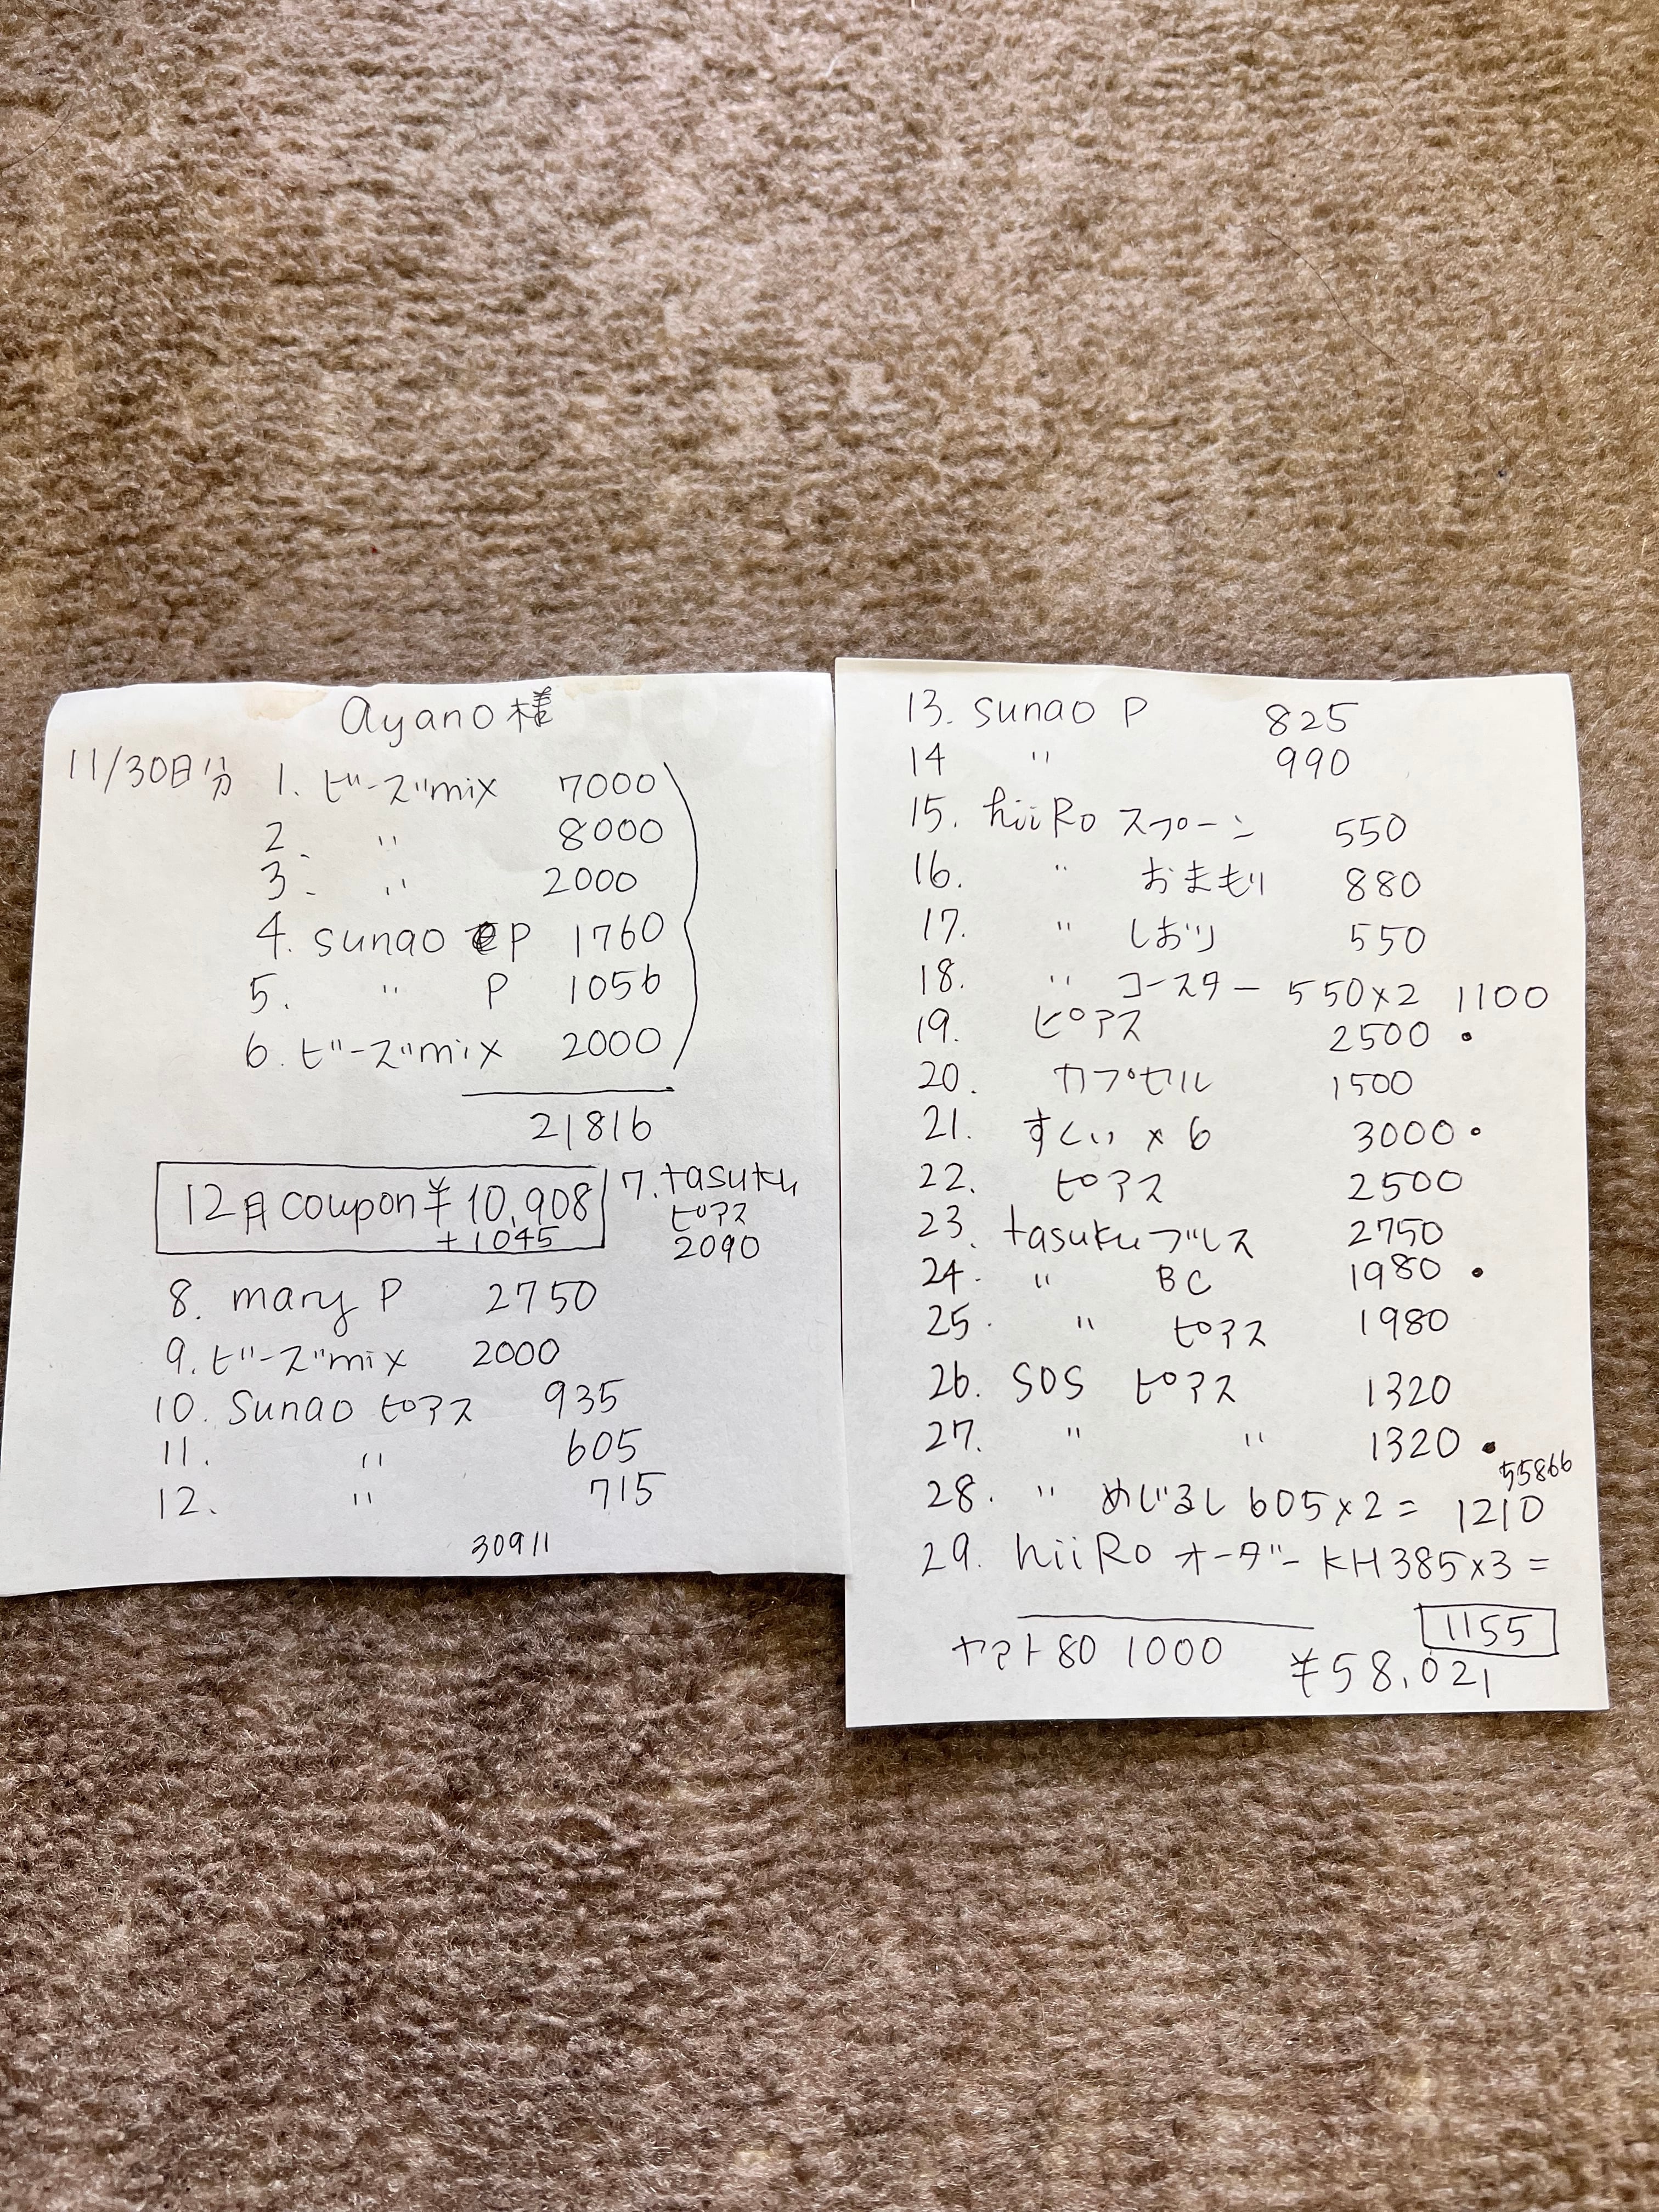 ayano様
11/30日分 1. ビーズmix 7000
2. 〃 8000
3. 〃 2000
4. sunao P 1760
5. 〃 P 1056
6. ビーズmix 2000
21816
12月coupon¥10,908
+1045
7. tasuku
ピアス
2090
8. mary P 2750
9. ビーズmix 2000
10. Sunao ピアス 935
11. 〃 605
12. 〃 715
30911
13. sunao P 825
14 〃 990
15. hiiRo スプーン 550
16. 〃 おまもり 880
17. 〃 しおり 550
18. 〃 コースター 550×2 1100
19. ピアス 2500 •
20. カプセル 1500
21. すくい×6 3000 •
22. ピアス 2500
23. tasukuブレス 2750
24. 〃 BC 1980 •
25. 〃 ピアス 1980
26. SOS ピアス 1320
27. 〃 〃 1320 •
55866
28. 〃 めじるし 605×2= 1210
29. hiiRo オーダー KH385×3=
1155
ヤマト80 1000
¥58,021